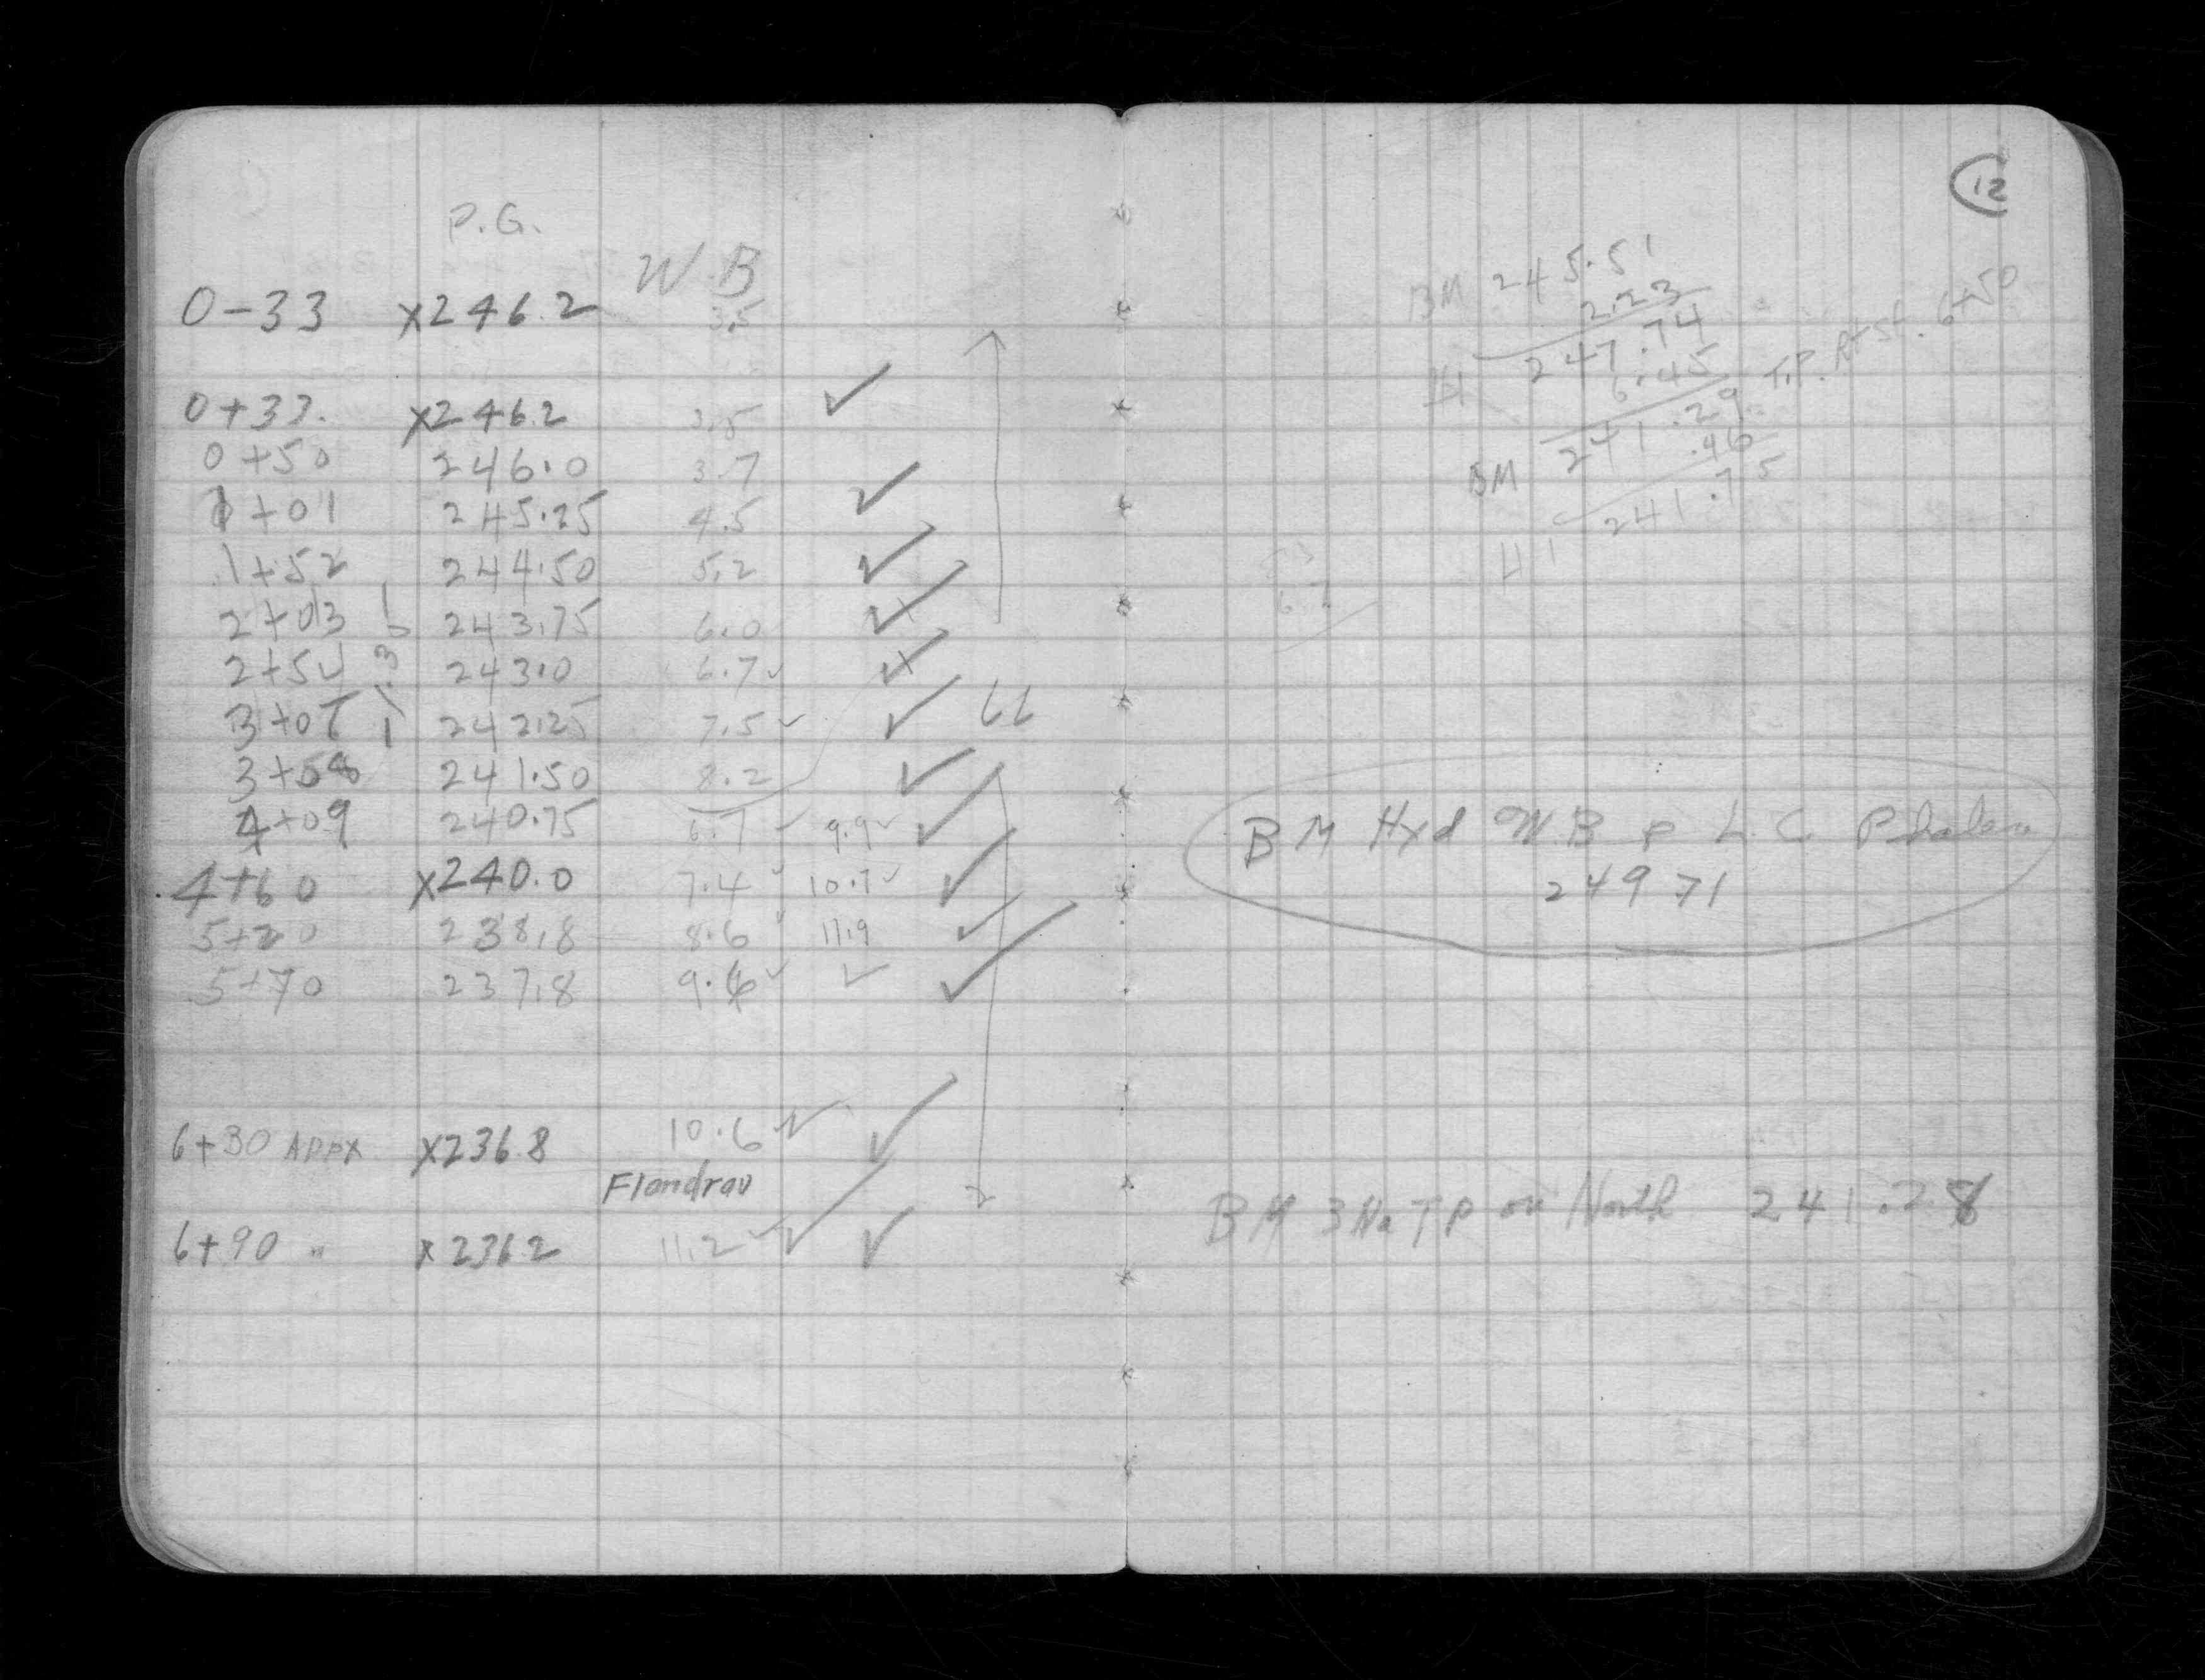 P.G.
W.B
0-33 x246.2 3.5
0+33. x246.2 3.5 ✓
0+50 246.0 3.7
1+01 245.25 4.5 ✓
1+52 244.50 5.2 ✓
2+03 243.75 6.0 ✓
2+54 243.0 6.7 ✓ ✓
3+05 242.25 7.5 ✓ ✓
3+58 241.50 8.2 ✓
4+09 240.75 6.7 ✓ 9.9 ✓ ✓
4+60 x240.0 7.4 ✓ 10.7 ✓ ✓
5+20 238.8 8.6 ✓ 11.9 ✓
5+70 237.8 9.6 ✓ ✓ ✓
6+30 APPX x236.8 10.6 ✓ ✓
Flandrau
6+90 " x236.2 11.2 ✓ ✓
12
BM 245.51
2.23
HI 247.74
6.45
BM 241.29 T.P. At St. 6+50
.46
HI 241.75
BM Hyd W.B p L C Phalen
249 71
BM 3 Ha TP on North 241.28